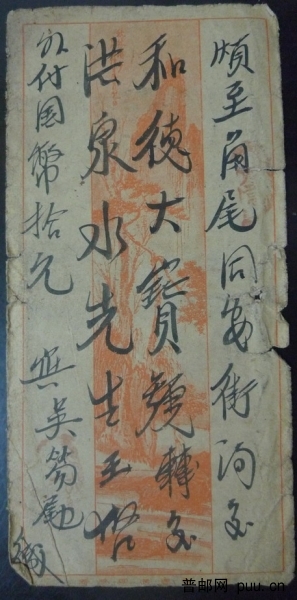 煩至角尾同安街詢交
和德大寶號轉交
洪泉水先生玉啓
外付國幣拾元 吳
普邮网-puu.cn